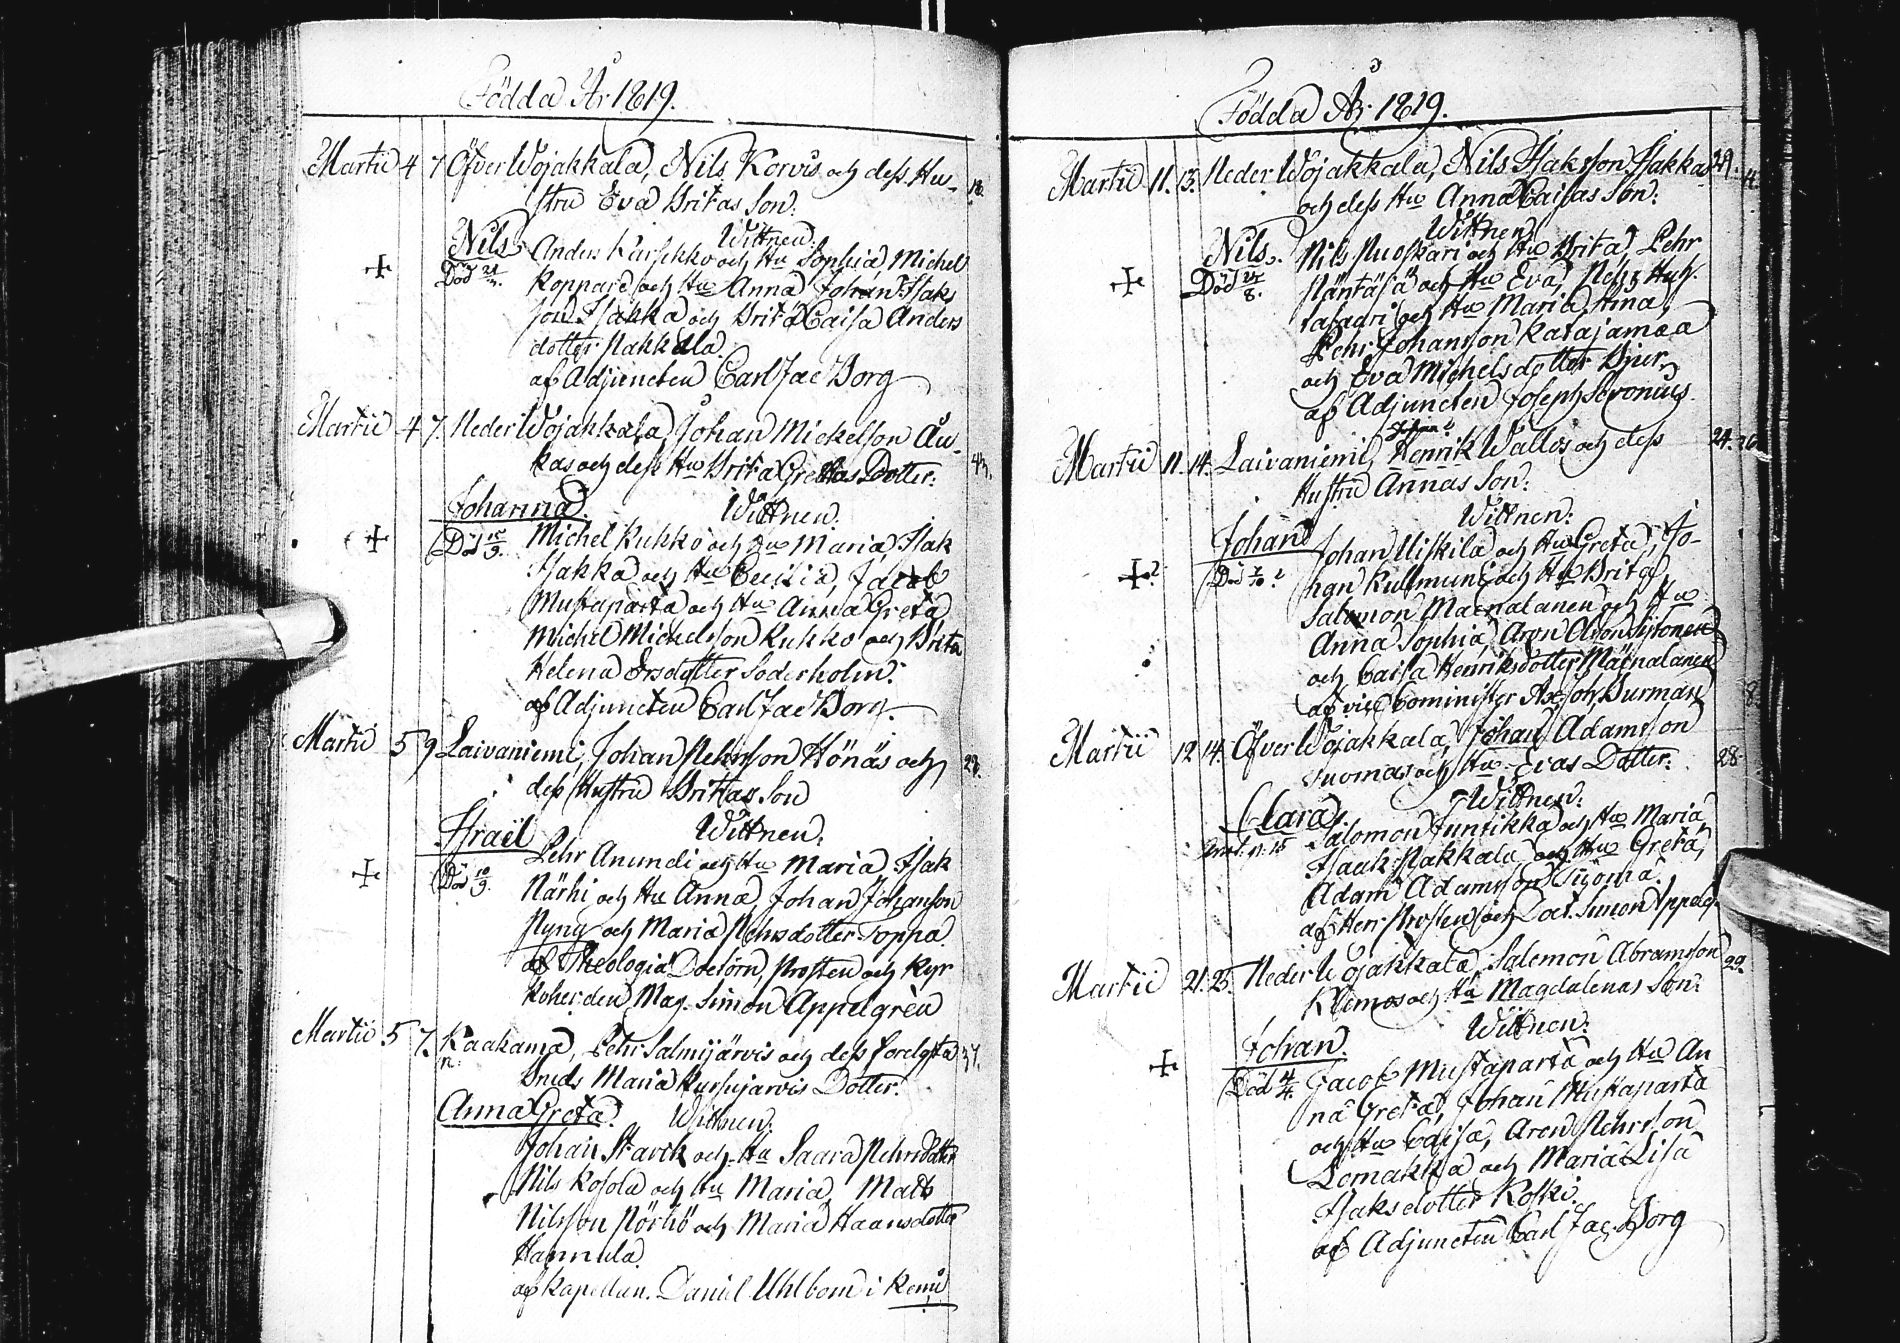 Födda År 1819.
Martii 4 7 Öfver Wojakkala, Nils Korvis och dess Hu-
stru Eva Britas Son:
Nils. Wittnen:
Anders Karsikko och Hu Sophia Michel
Död 21/7. Koppare och Hu Anna Johan Isaks
son Isakka och Brita Caisa Anders
dotter Nakkala.
af Adjuncten Carl Jac Borg
Martii 4 7. Neder Wojakkala, Johan Mickelson Au-
kas och dess Hu Brita Gretas Dotter: 43.
Johanna. Wittnen:
Död 15/9. Michel Kukko och Hu Maria, Isak
Isakka och Hu Cecilia, Jacob
Mustaparta och Hu Anna Greta
Michel Mickelson Kukko och Brita
Helena Ersdotter Söderholm.
af Adjuncten Carl Jac Borg.
Martii 5 9 Laivaniemi, Johan Pehrson Hönäs och
dess Hustru Britas Son
Israil Wittnen:
Pehr Anundi och Hu Maria, Isak
Död 10/9. Närhi och Hu Anna, Johan Johanson
Nyny och Maria Pehrsdotter Toppa.
af Theologiæ Doctorn, Prosten och Kyr
koherden Mag. Simon Appelgren
Martii 5 7. Kaakama, Pehr Salmijärvis och dess förelgsta 37.
Maria Kursujärvis Dotter.
Anna Greta. Wittnen:
Johan Starck och Hu Saara Pehrsdotter
Nils Kosola och Hu Maria, Mats
Nilsson Pörhö och Maria Haansdotter
Hannula.
af Kapellan. Daniel Uhlbom i Kemi
Födda År 1819.
Martii 11. 13. Neder Wojakkala, Nils Isakson Isakkas 29.
och dess Hu Anna Caisas Son:
Wittnen
Nils. Nils Ruoskari och Hu Brita, Pehr
Död 24/8. Päntäjä och Hu Eva,
och Hu Maria,
Pehr Johanson Katajamaa
och Eva Michelsdotter Björ.
af Adjuncten Joseph Heronius.
Johan?
Martii 11. 14. Laivaniemi, Henrik Wallos och dess 24.
Hustru Annas Son:
Wittnen:
Johan Johan Uiskila och Hu Greta, Jo-
Död 7/10 ? han Kullmuni och Hu Brita,
Salomon Maenalanen och Hu
Anna Sophia, Aron Aronsson
och Caisa Henriksdotter Mäenalanen
af vice Cominister Ax Joh. Burman
Martii 12 14. Öfver Wojakkala, Johan Adamsson
Suomas och Hu Evas Dotter. 28.
Wittnen:
Clara. Salomon Juntikka och Hu Maria,
Isaak Nakkala och Hu Greta,
Adam Adamsson Suoma.
af Herr Prosten och Doct. Simon Appelg.
Martii 21. 25. Neder Wojakkala, Salomon Abramsson 22.
Klemos och Hu Magdalenas Son:
Wittnen:
Johan. Jacob Mustaparta och Hu An
Död 4/4. na Greta, Johan Mustaparta
och Hu Caisa, Aron Pehrsson
Lomakka och Maria Lisa
Isaksdotter Koski.
af Adjuncten Carl Jac. Borg